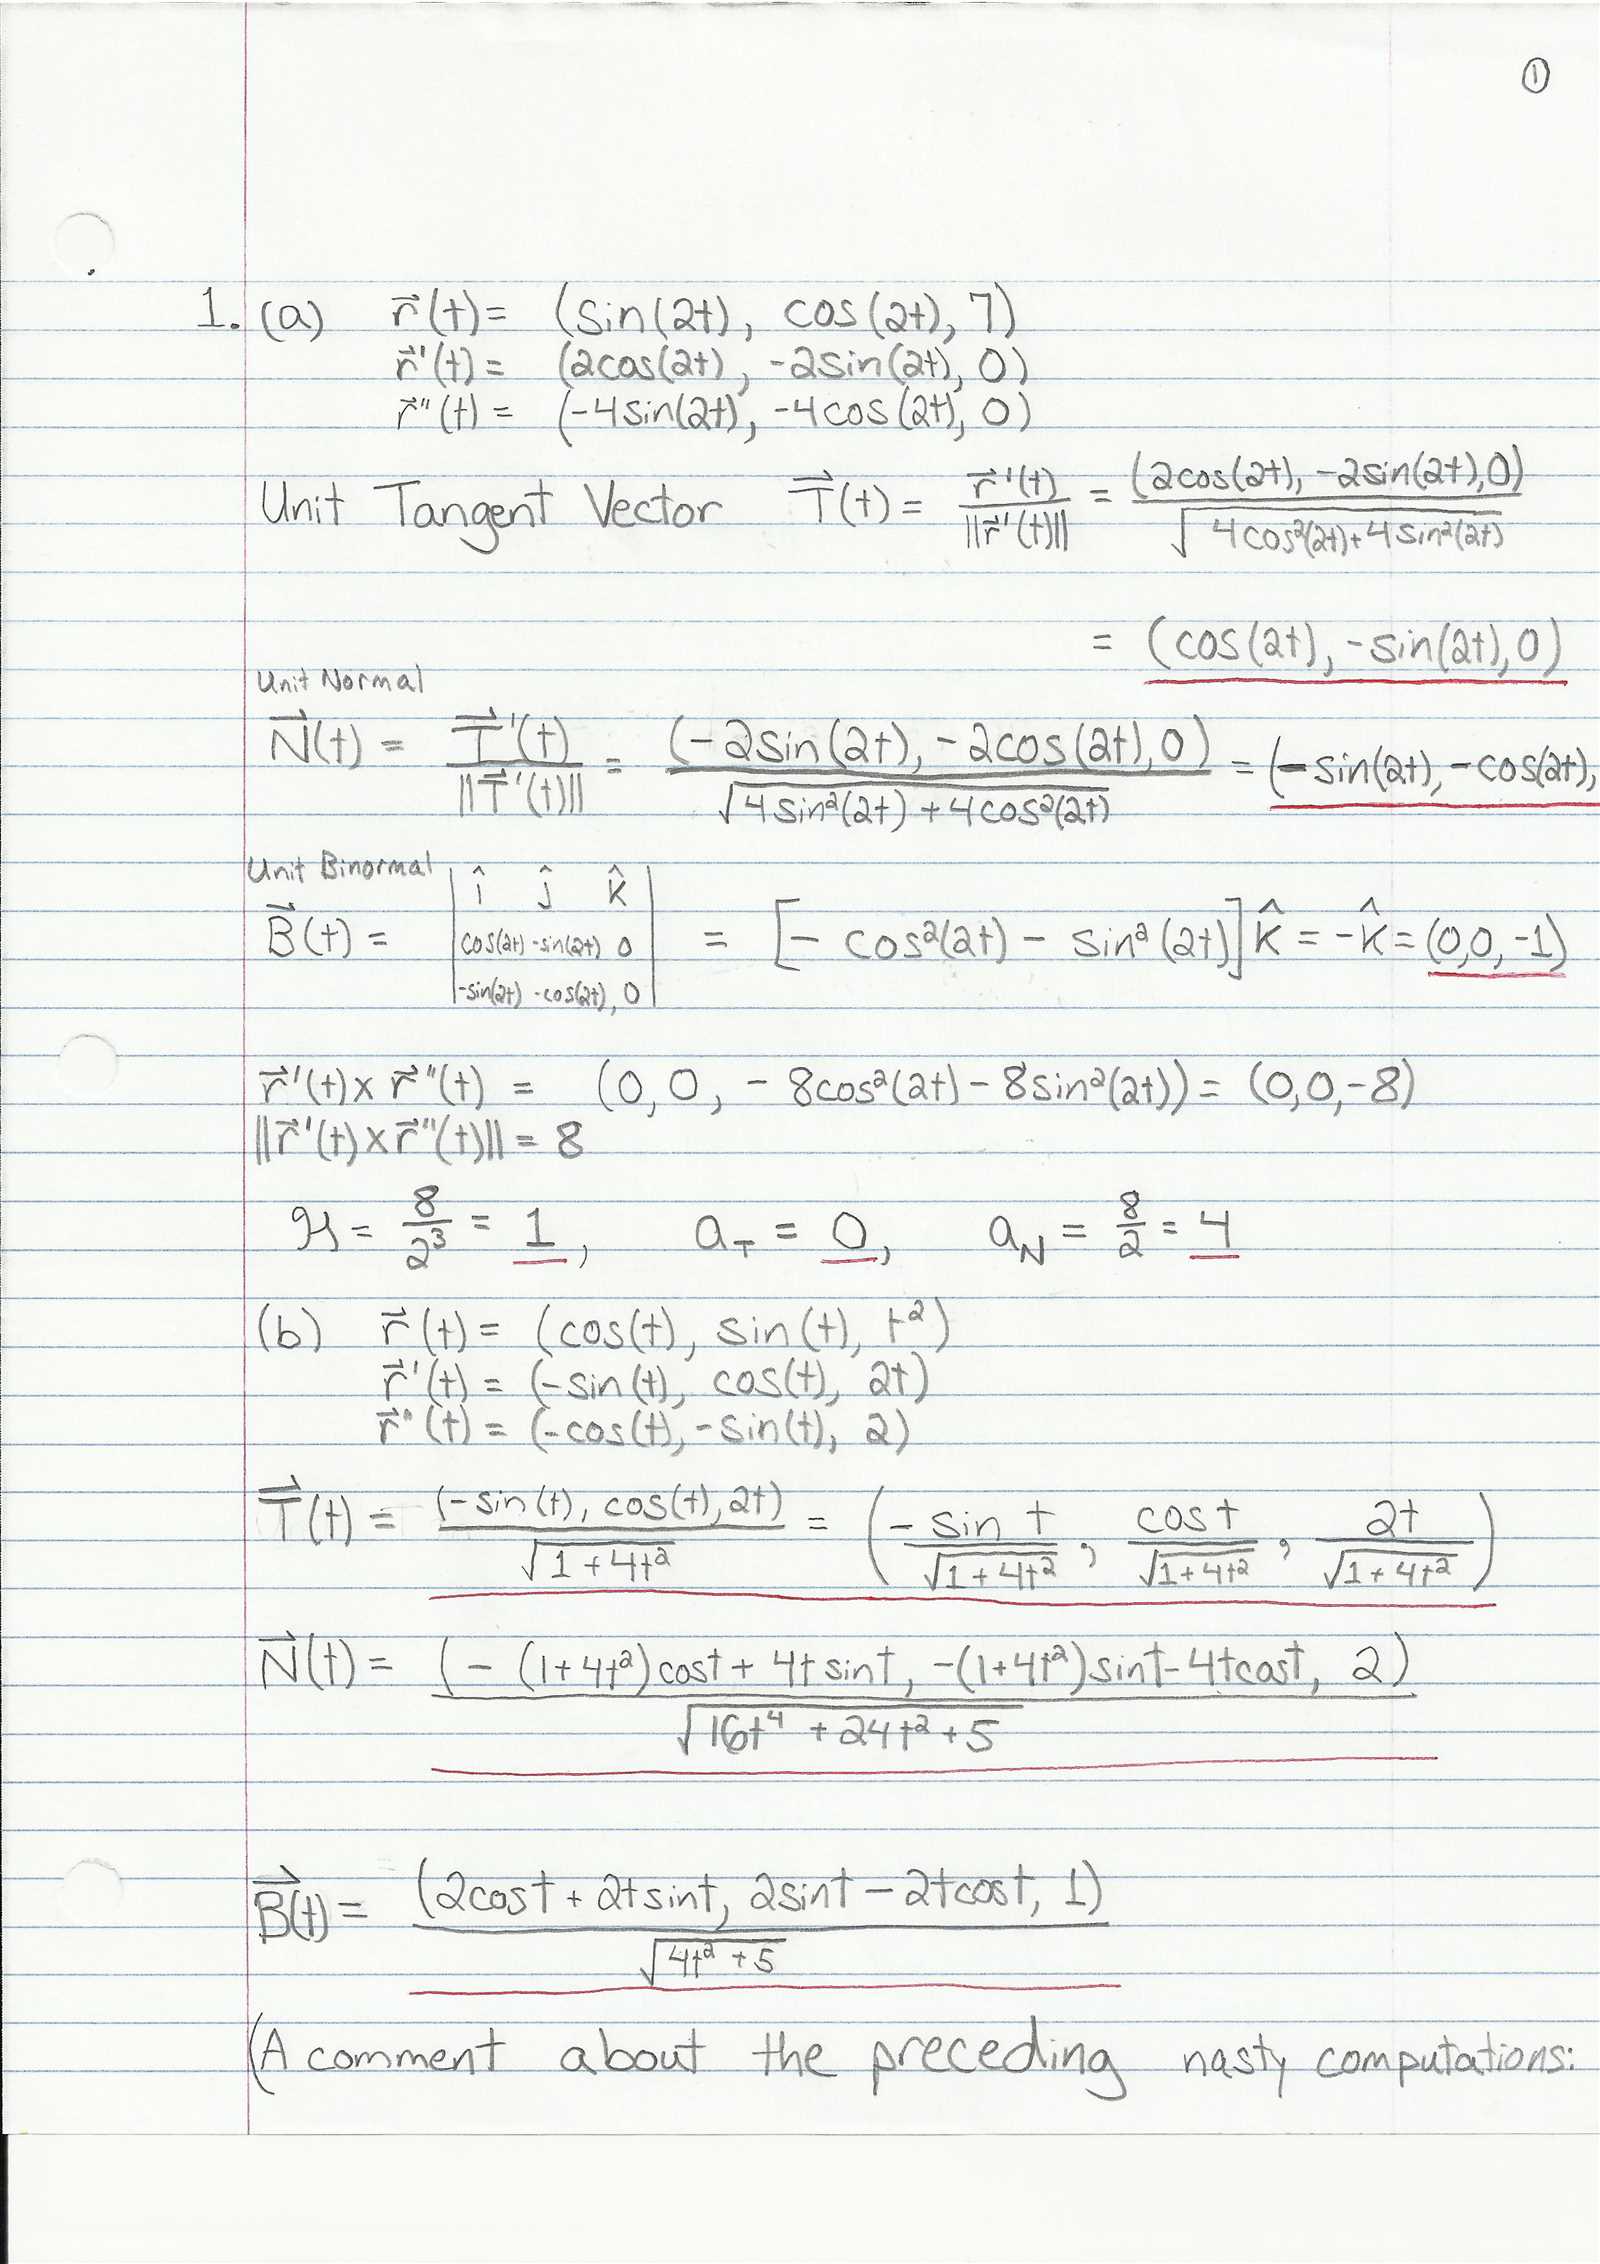 ①
1. (a) r⃗(t) = (sin(2t), cos(2t), 7)
r⃗'(t) = (2cos(2t), -2sin(2t), 0)
r⃗''(t) = (-4sin(2t), -4cos(2t), 0)
Unit Tangent Vector T⃗(t) = r⃗'(t) / ||r⃗'(t)|| = (2cos(2t), -2sin(2t), 0) / √(4cos²(2t)+4sin²(2t))
= (cos(2t), -sin(2t), 0)
Unit Normal
N⃗(t) = T⃗'(t) / ||T⃗'(t)|| = (-2sin(2t), -2cos(2t), 0) / √(4sin²(2t)+4cos²(2t)) = (-sin(2t), -cos(2t),
Unit Binormal
B⃗(t) = | î ĵ k̂ | cos(2t) -sin(2t) 0 | -sin(2t) -cos(2t), 0 | = [-cos²(2t) - sin²(2t)] k̂ = -k̂ = (0,0,-1)
r⃗'(t) x r⃗''(t) = (0, 0, -8cos²(2t) - 8sin²(2t)) = (0,0,-8)
||r⃗'(t) x r⃗''(t)|| = 8
ϰ = 8/2³ = 1, a_T = 0, a_N = 8/2 = 4
(b) r⃗(t) = (cos(t), sin(t), t²)
r⃗'(t) = (-sin(t), cos(t), 2t)
r⃗''(t) = (-cos(t), -sin(t), 2)
T⃗(t) = (-sin(t), cos(t), 2t) / √(1+4t²) = (-sin t / √(1+4t²), cos t / √(1+4t²), 2t / √(1+4t²))
N⃗(t) = (-(1+4t²)cost + 4tsint, -(1+4t²)sint - 4tcost, 2) / √(16t⁴ + 24t² + 5)
B⃗(t) = (2cost + 2tsint, 2sint - 2tcost, 1) / √(4t² + 5)
(A comment about the preceding nasty computations: